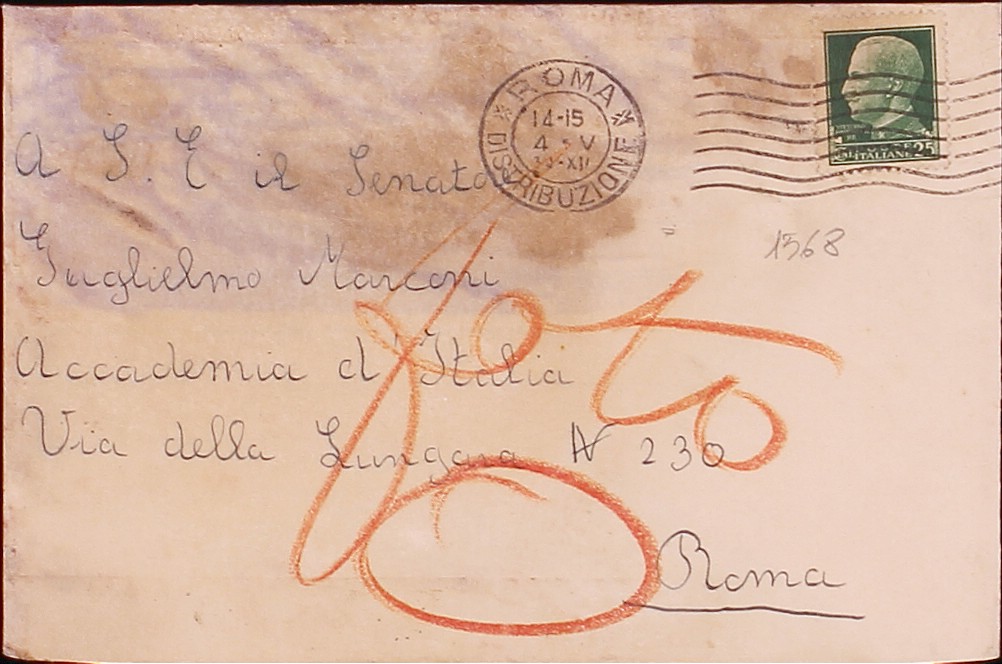 ROMA
14-15
4 V
DISTRIBUZIONE
ITALIANE 25
A S. E il Senato
1568
Guglielmo Marconi
Accademia d'Italia
Via della Lungara N 230
Roma